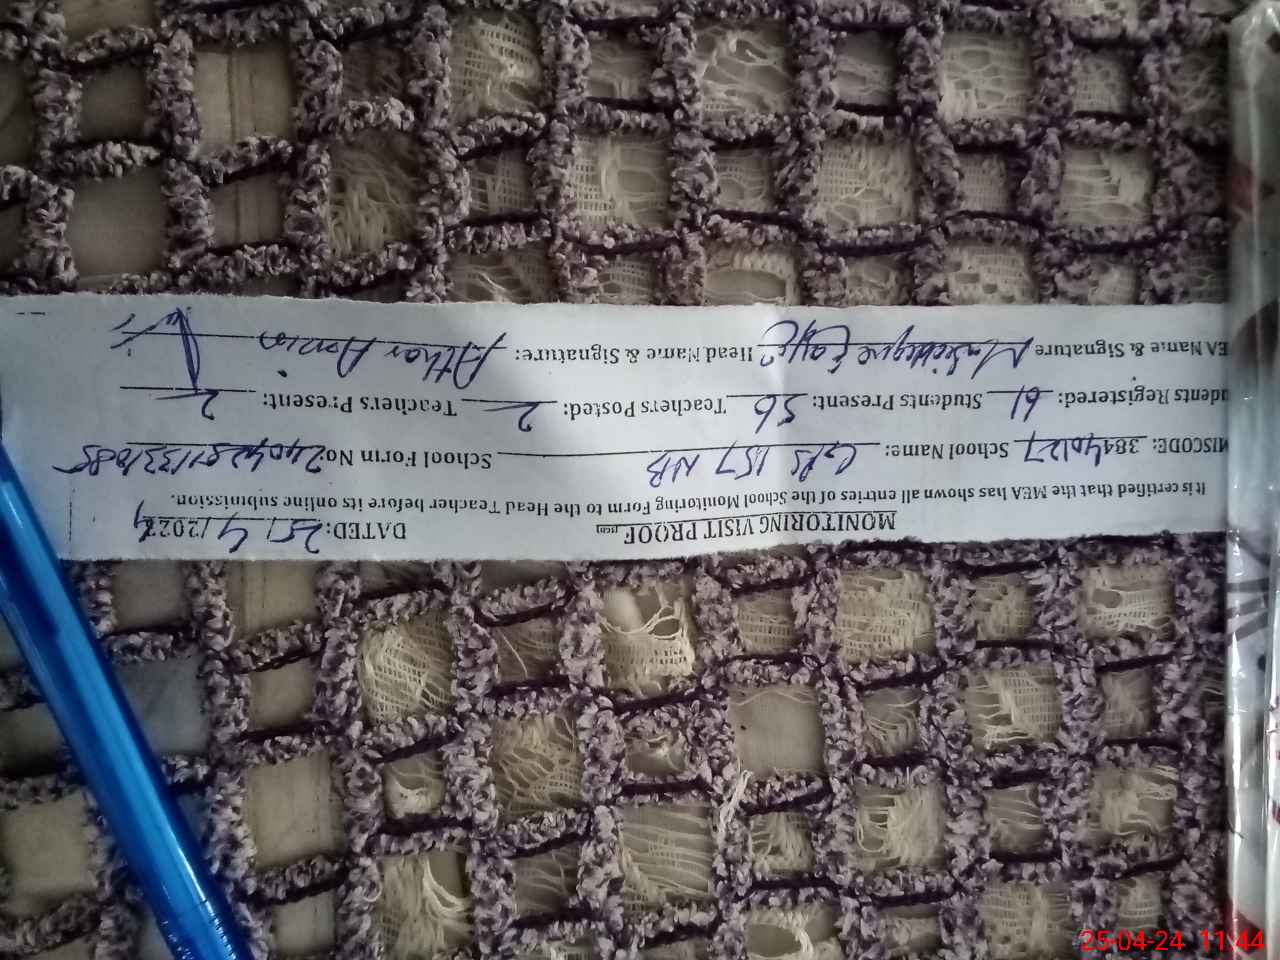 MONITORING VISIT PROOF DATED: 25/4/2024
It is certified that the MEA has shown all entries of the School Monitoring Form to the Head Teacher before its online submission.
MISCODE: 38440127 School Name: GPS 157 NB School Form No
udents Registered: 61 Students Present: 56 Teachers Posted: 2 Teachers Present: 2
EA Name & Signature Head Name & Signature: Athar Amin
25-04-24 11:44